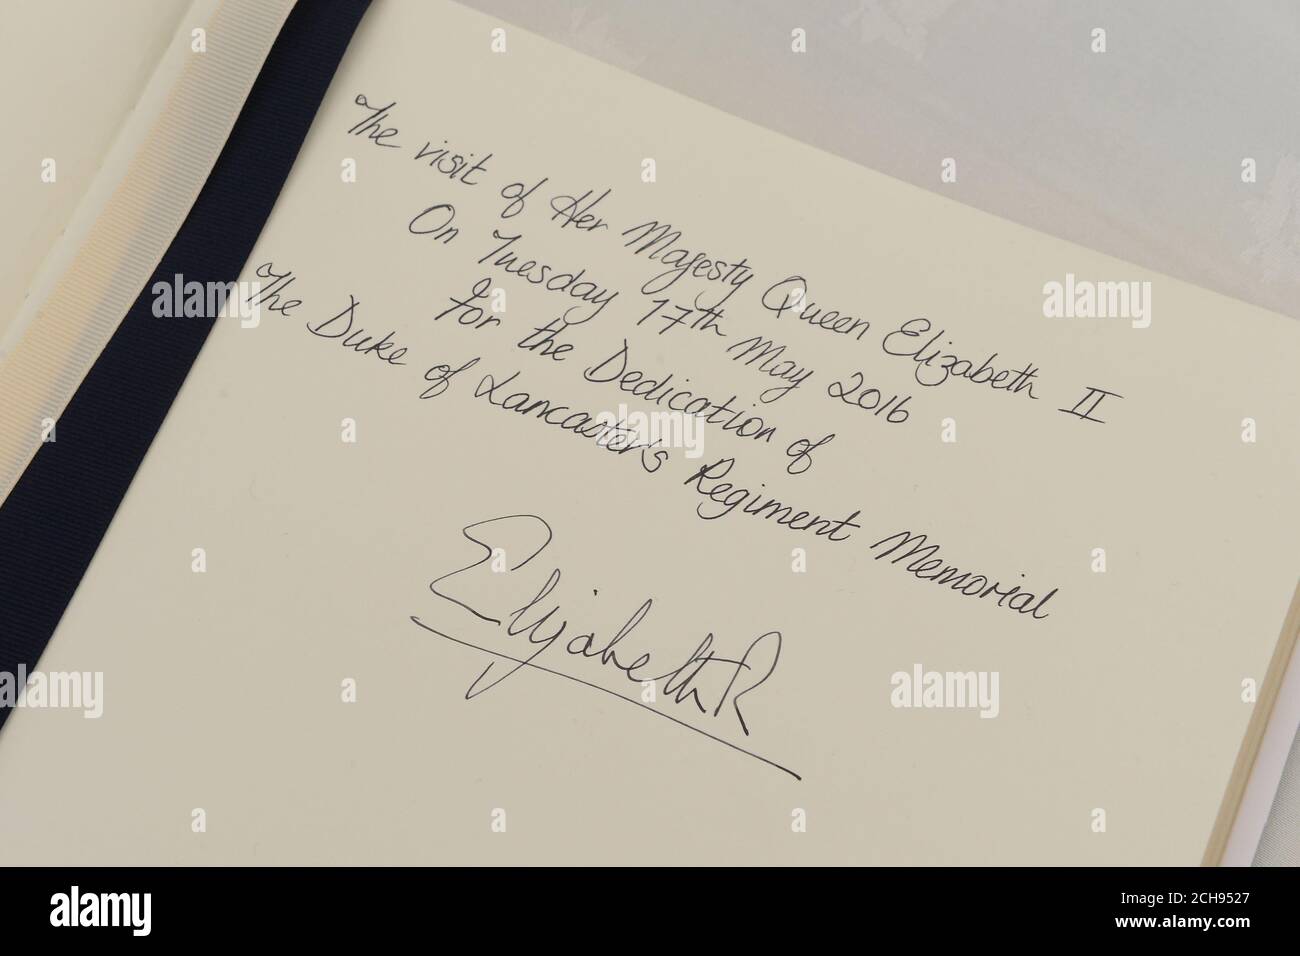 The visit of Her Majesty Queen Elizabeth II
On Tuesday 17th May 2016
For the Dedication of
The Duke of Lancaster's Regiment Memorial
Elizabeth R
alamy
alamy
alamy
alamy
alamy
a
alamy
Image ID: 2CH9527
www.alamy.com